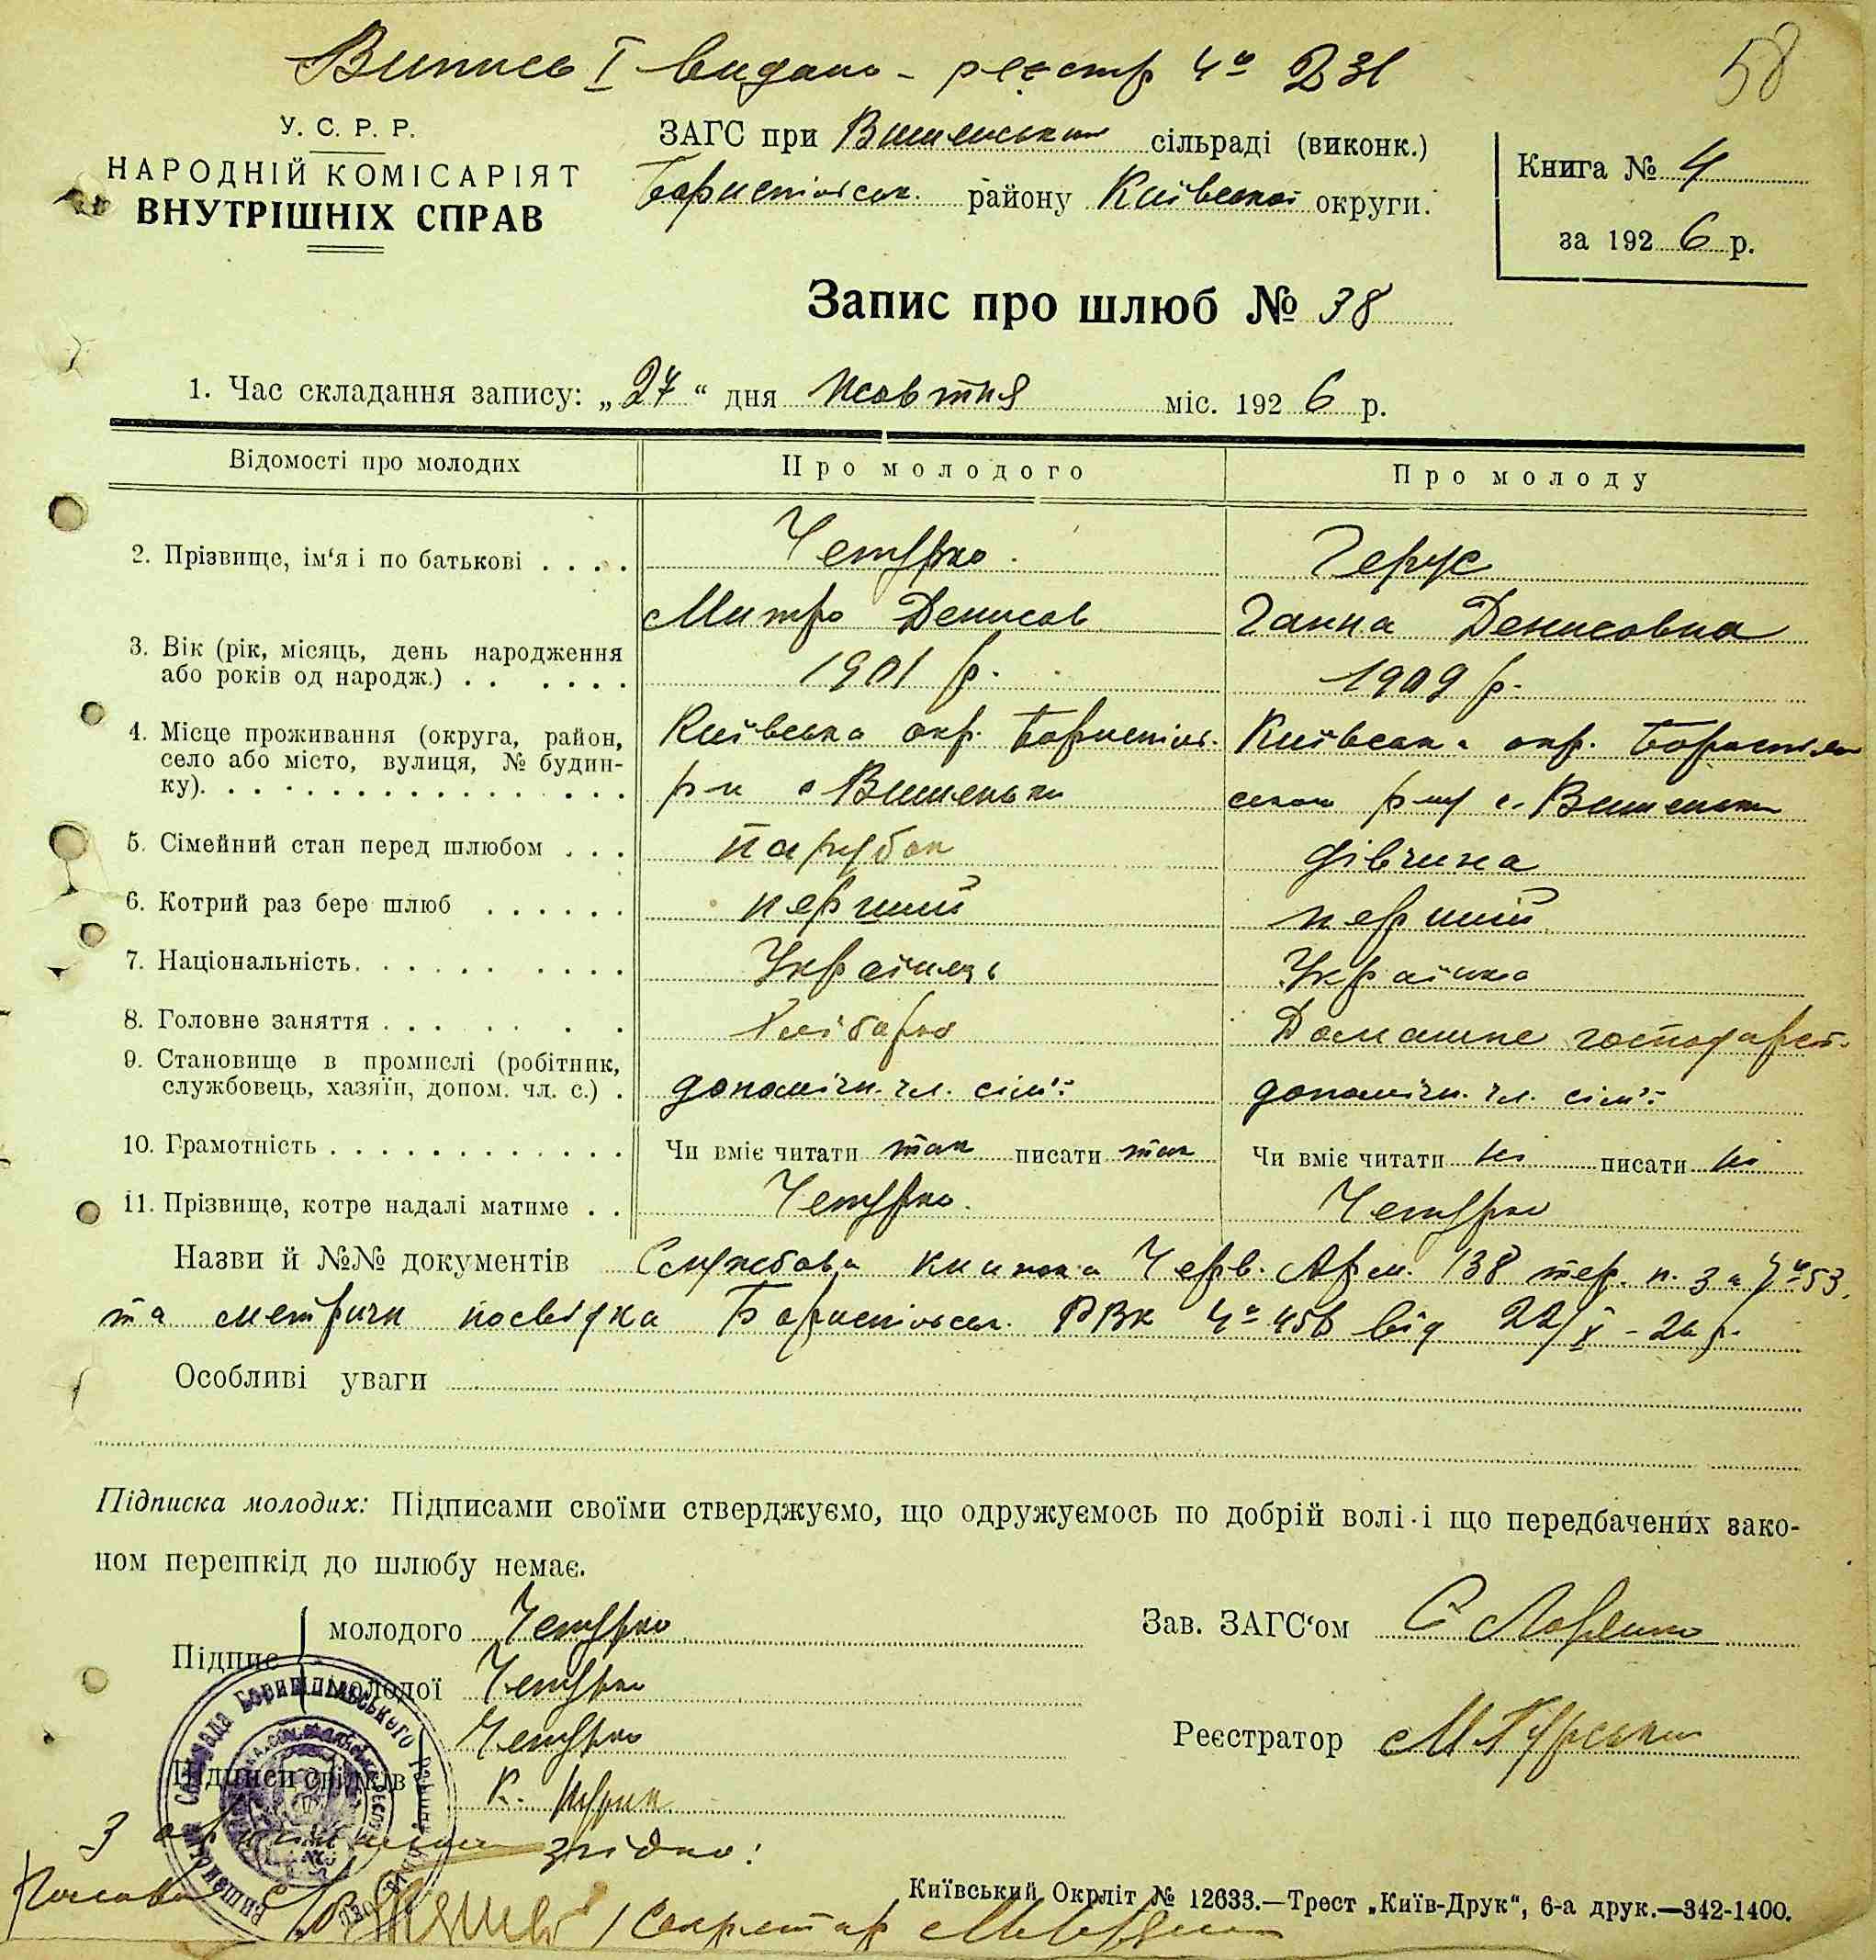 Випись I видано - реєстр № 231
58
У. С. Р. Р.
НАРОДНІЙ КОМІСАРІЯТ
ВНУТРІШНІХ СПРАВ
ЗАГС при Вишенськи сільраді (виконк.)
Бориспільськ. району Київської округи.
Книга № 4
за 1926 р.
Запис про шлюб № 38
1. Час складання запису: „27“ дня жовтня міс. 1926 р.
Відомості про молодих
Про молодого
Про молоду
2. Прізвище, ім‘я і по батькові . . . .
Нетурко
Митро Денисов
Герус
Ганна Денисовна
3. Вік (рік, місяць, день народження
або років од народж.) . . . . . .
1901 р.
1909 р.
4. Місце проживання (округа, район,
село або місто, вулиця, № будин-
ку). . . . . . . . . . . . . . . .
Київська окр. Бориспіль.
р-н с Вишеньки
Київськ. окр. Бориспіль
ськом р-ну с. Вишеньки
5. Сімейний стан перед шлюбом . . .
парубок
дівчина
6. Котрий раз бере шлюб . . . . . .
перший
перший
7. Національність. . . . . . . . . .
Українець
Українка
8. Головне заняття . . . . . . . .
Хлібороб
Домашнє господарст.
9. Становище в промислі (робітник,
службовець, хазяїн, допом. чл. с.) .
допоміжн. чл. сім'ї
допоміжн. чл. сім'ї
10. Грамотність . . . . . . . . . . . . .
Чи вміє читати так писати так
Чи вміє читати ні писати ні
11. Прізвище, котре надалі матиме . .
Нетурко.
Нетурко
Назви й №№ документів Службова книжка Черв. Арм. 138 тер. п. за № 53.
та метричн посвідка Бориспільськ. РВК № 456 від 22/X - 26 р.
Особливі уваги
Підписка молодих: Підписами своїми стверджуємо, що одружуємось по добрій волі і що передбачених зако-
ном перешкід до шлюбу немає.
Підпис
молодого Нетурко
молодої Нетурко
Нетурко
Підписи свідків
К.
Зав. ЗАГС‘ом С
Реєстратор М.
Сільрада Бориспільського району
З оригіналом згідно:
Голова
/ Секретар
Київський Окрліт № 12633.—Трест „Київ-Друк“, 6-а друк.—342-1400.